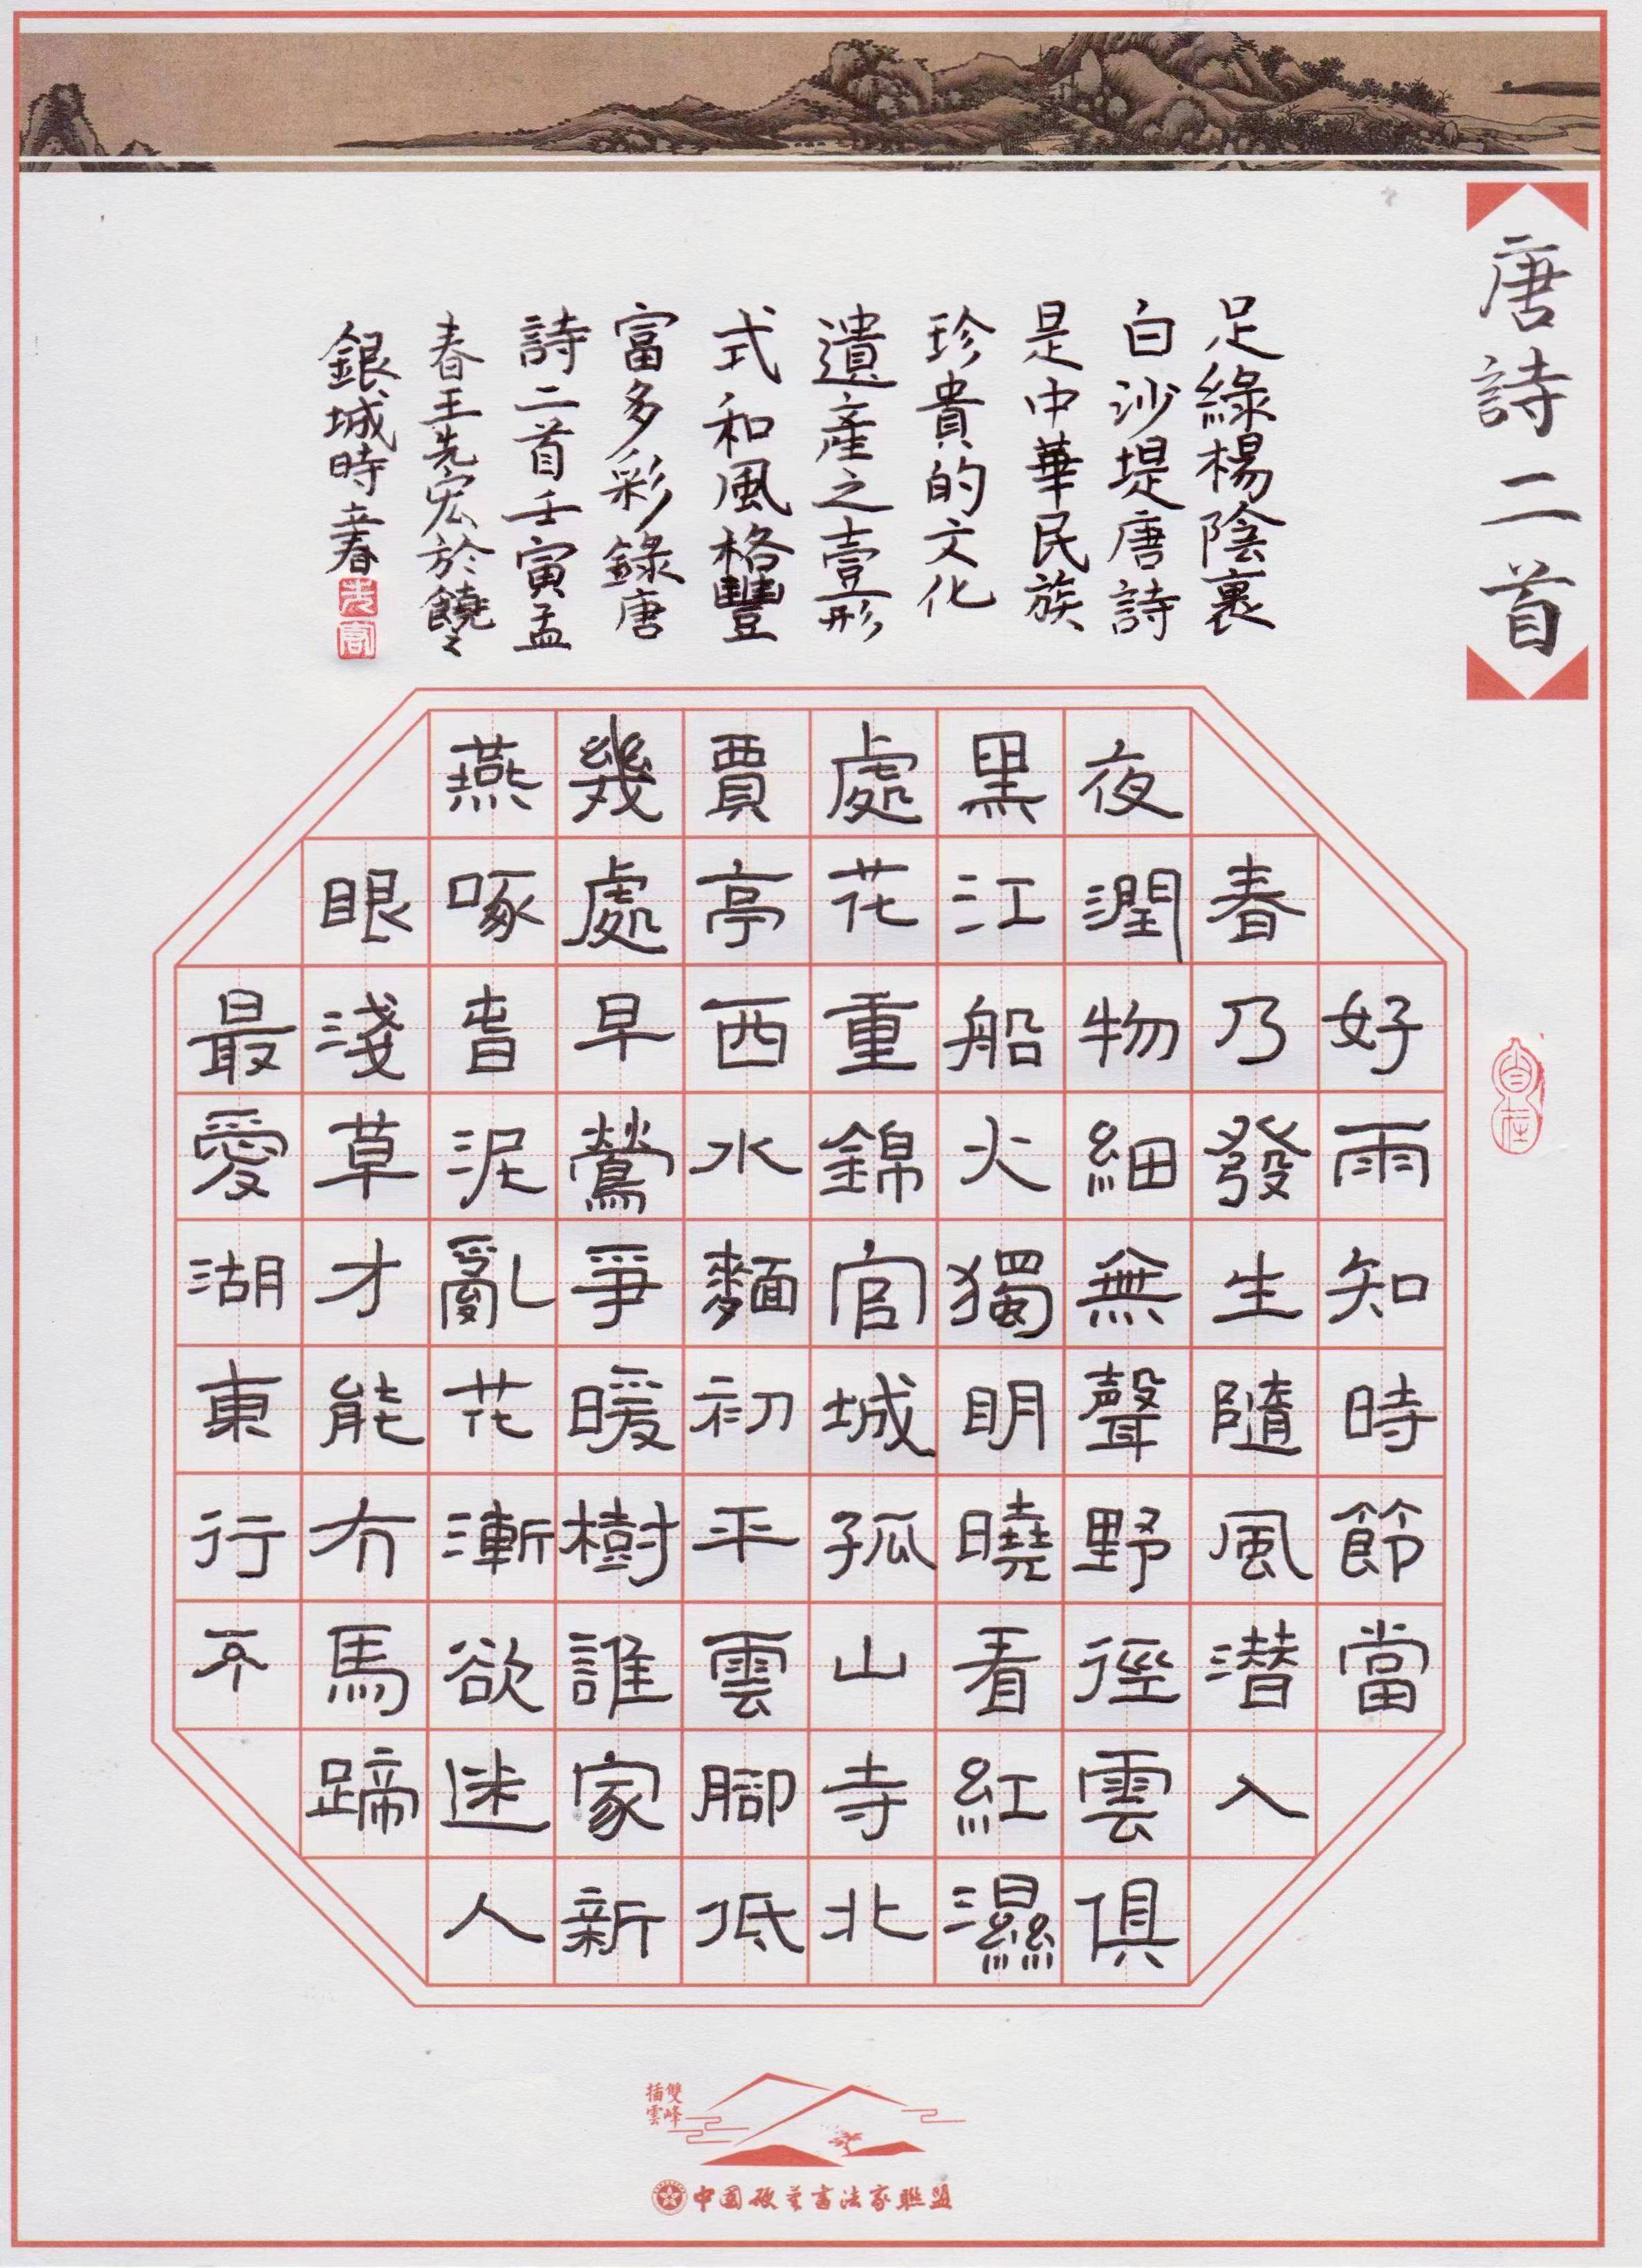 唐詩二首
好雨知時節當
春乃發生隨風潜入
夜潤物細無聲野徑雲俱
黑江船火獨明曉看紅濕
處花重錦官城孤山寺北
賈亭西水麵初平雲腳低
幾處早鶯爭暖樹誰家新
燕啄春泥亂花漸欲迷人
眼淺草才能冇馬蹄
最愛湖東行不
足綠楊陰裹
白沙堤唐詩
是中華民族
珍貴的文化
遺產之壹形
式和風格豐
富多彩錄唐
詩二首壬寅孟
春王先宏於饒之
銀城時立春
自在
雙峰
插雲
中国硬笔书法家联盟